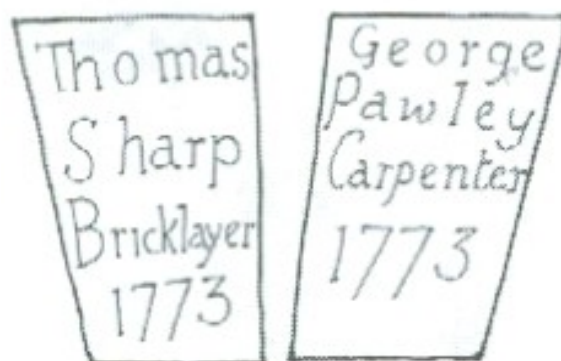 Thomas
Sharp
Bricklayer
1773
George
Pawley
Carpenter
1773